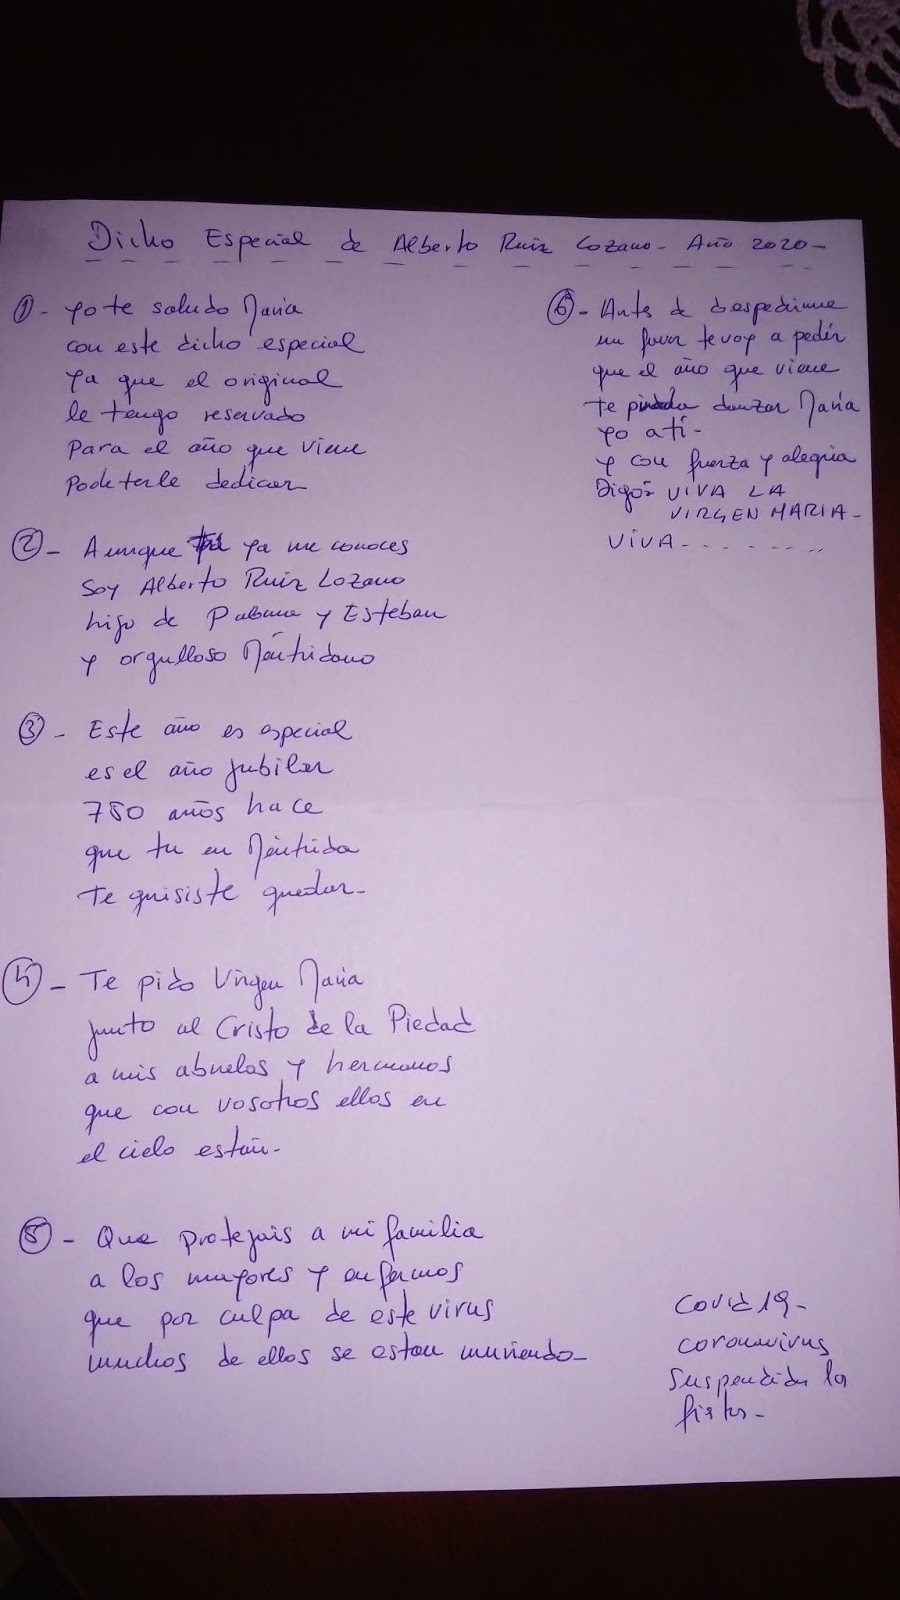 Dicho Especial de Alberto Ruiz Lozano - Año 2020 -
① - Yo te saludo María
con este dicho especial
Ya que el original
le tengo reservado
Para el año que viene
Podertele dedicar
② - Aunque ya me conoces
Soy Alberto Ruiz Lozano
hijo de Paloma y Esteban
y orgulloso Méntridano
③ - Este año es especial
es el año jubilar
750 años hace
que tu en Méntrida
te quisiste quedar -
④ - Te pido Virgen María
junto al Cristo de la Piedad
a mis abuelos y hermanos
que con vosotros ellos en
el cielo están -
⑤ - Que protejais a mi familia
a los mayores y enfermos
que por culpa de este virus
muchos de ellos se estan muriendo -
⑥ - Antes de despedirme
un favor te voy a pedir
que el año que viene
te pueda danzar María
yo a ti -
y con fuerza y alegria
Digo:- VIVA LA
VIRGEN MARIA -
VIVA - . . . . . . . .
Covid 19 -
coronavirus
Suspendidas las
fiestas -